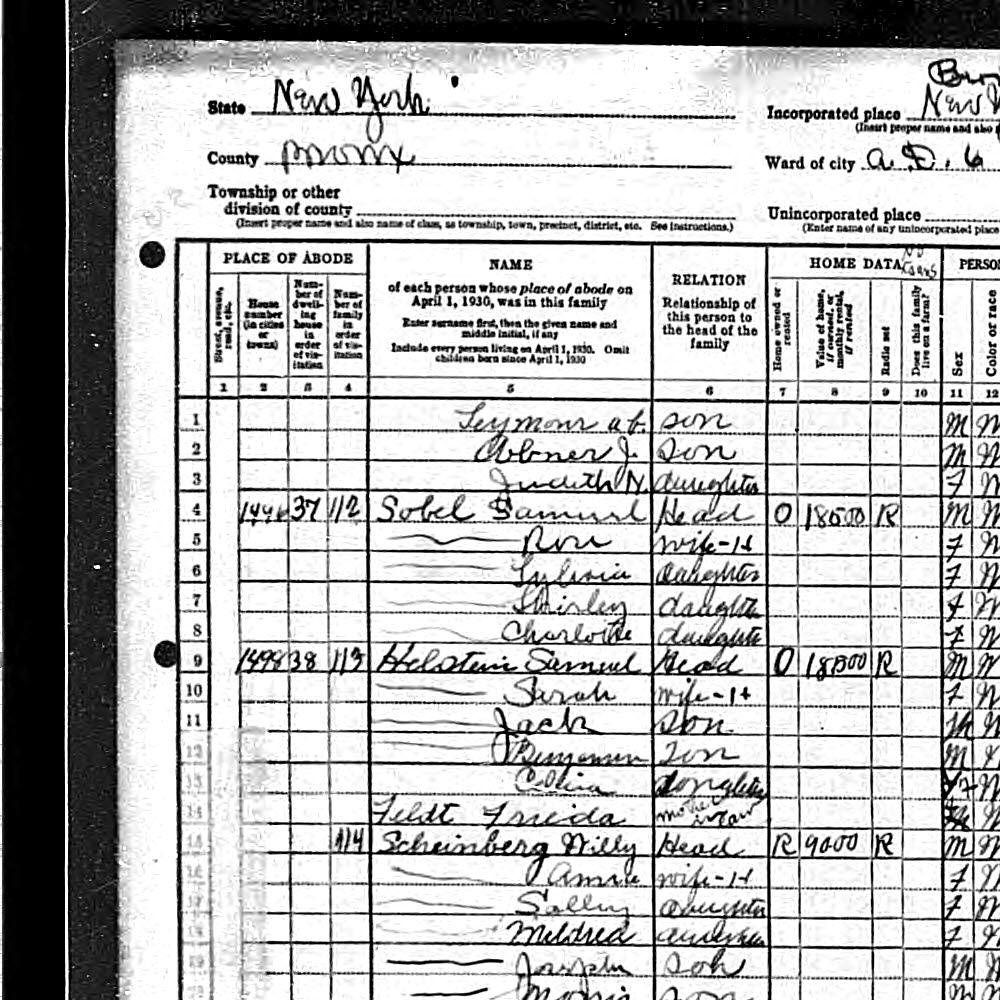 State New York
Incorporated place New
(Insert proper name and also
County Bronx
Ward of city A.D. 6
Township or other
division of county
(Insert proper name and also name of class, as township, town, precinct, district, etc. See instructions.)
Unincorporated place
(Enter name of any unincorporated place
PLACE OF ABODE
NAME
of each person whose place of abode on
April 1, 1930, was in this family
Enter surname first, then the given name and
middle initial, if any
Include every person living on April 1, 1930. Omit
children born since April 1, 1930
RELATION
Relationship of
this person to
the head of the
family
HOME DATA
PERSON
Street, avenue, road, etc.
House number (in cities or towns)
Number of dwelling house in order of visitation
Number of family in order of visitation
Home owned or rented
Value of home, if owned, or monthly rental, if rented
Radio set
Does this family live on a farm?
Sex
Color or race
1 2 3 4 5 6 7 8 9 10 11 12
1 Seymour son M W
2 Abner J. Son M W
3 Judith N. daughter F W
4 37 112 Sobel Samuel Head O 18500 R M W
5 Rose wife-H F W
6 Sylvia daughter F W
7 Shirley daughter F W
8 Charlotte daughter F W
9 1498 38 113 Helstein Samuel Head O 18500 R M W
10 Sarah wife-H F W
11 Jack Son M W
12 Benjamin Son M W
13 Celia daughter F W
14 Feldt Frieda mother in law W
15 114 Scheinberg Willy Head R 9000 R M W
16 Annie wife-H F W
17 Sally daughter F W
18 Mildred daughter F W
19 Joseph Son M W
Morris son M